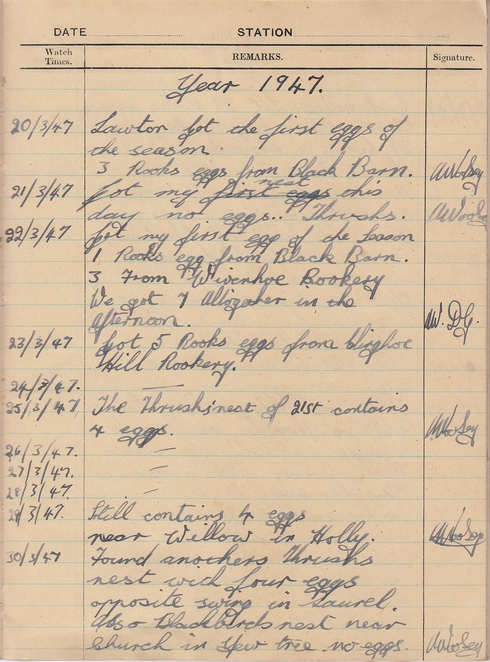 DATE STATION
Watch Times. REMARKS. Signature.
Year 1947.
20/3/47 Lawton got the first eggs of
the season.
3 Rooks eggs from Black Barn. AWolsey
21/3/47 Got my first nest this
day no eggs.. Thrushs.
22/3/47 Got my first egg of the Season
1 Rooks egg from Black Barn.
3 From Wivenhoe Rookery
We got 7 Altogater in the
afternoon. AW. D.G.
23/3/47 Got 5 Rooks eggs from
Hill Rookery.
24/3/47. —
25/3/47 The Thrush's nest of 21st contains
4 eggs. AWolsey
26/3/47. —
27/3/47. —
28/3/47 —
29/3/47. Still contains 4 eggs
near Willow in Holly. AWolsey
30/3/47 Found anothers Thrushs
nest with four eggs
opposite swing in Laurel.
Also Blackbirds nest near
Church in Yew tree no eggs. AWolsey